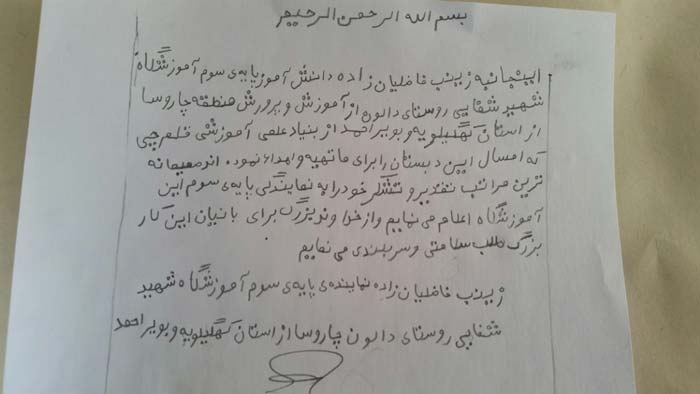 بسم الله الرحمن الرحیم
اینجانبه زینب فاضلیان زاده دانش آموز پایه ی سوم آموزشگاه
شهید شفایی روستای دالون از آموزش و پرورش منطقه چاروسا
از استان کهگیلویه و بویر احمد از بنیاد علمی آموزشی قلم چی
که امسال این دبستان را برای ما تهیه و اهداء نموده اند صمیمانه
ترین مراتب تقدیر و تشکر خود را به نمایندگی پایه ی سوم این
آموزشگاه اعلام می نمایم و از خداوند بزرگ برای بانیان این کار
بزرگ طلب سلامتی و سربلندی می نمایم
زینب فاضلیان زاده نماینده ی پایه ی سوم آموزشگاه شهید
شفایی روستای دالون چاروسا از استان کهگیلویه و بویر احمد